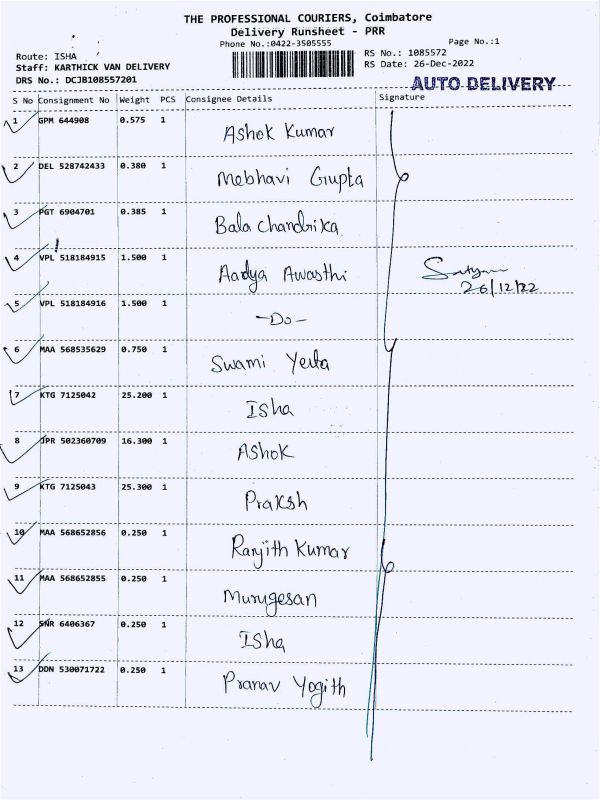 THE PROFESSIONAL COURIERS, Coimbatore
Delivery Runsheet - PRR
Phone No.:0422-3505555
Page No.:1
Route: ISHA
RS No.: 1085572
Staff: KARTHICK VAN DELIVERY
RS Date: 26-Dec-2022
DRS No.: DCJB108557201
AUTO DELIVERY
S No Consignment No Weight PCS Consignee Details Signature
1 GPM 644908 0.575 1 Ashok Kumar
2 DEL 528742433 0.380 1 Mebhavi Gupta
3 PGT 6904701 0.385 1 Bala Chandrika
4 VPL 518184915 1.500 1 Aadya Awasthi
Satyam
26/12/22
5 VPL 518184916 1.500 1 -Do-
6 MAA 568535629 0.750 1 Swami Yesta
7 KTG 7125042 25.200 1 Isha
8 JPR 502360709 16.300 1 Ashok
9 KTG 7125043 25.300 1 Praksh
10 MAA 568652856 0.250 1 Ranjith Kumar
11 MAA 568652855 0.250 1 Murugesan
12 SNR 6406367 0.250 1 Isha
13 DDN 530071722 0.250 1 Pranav Yogith